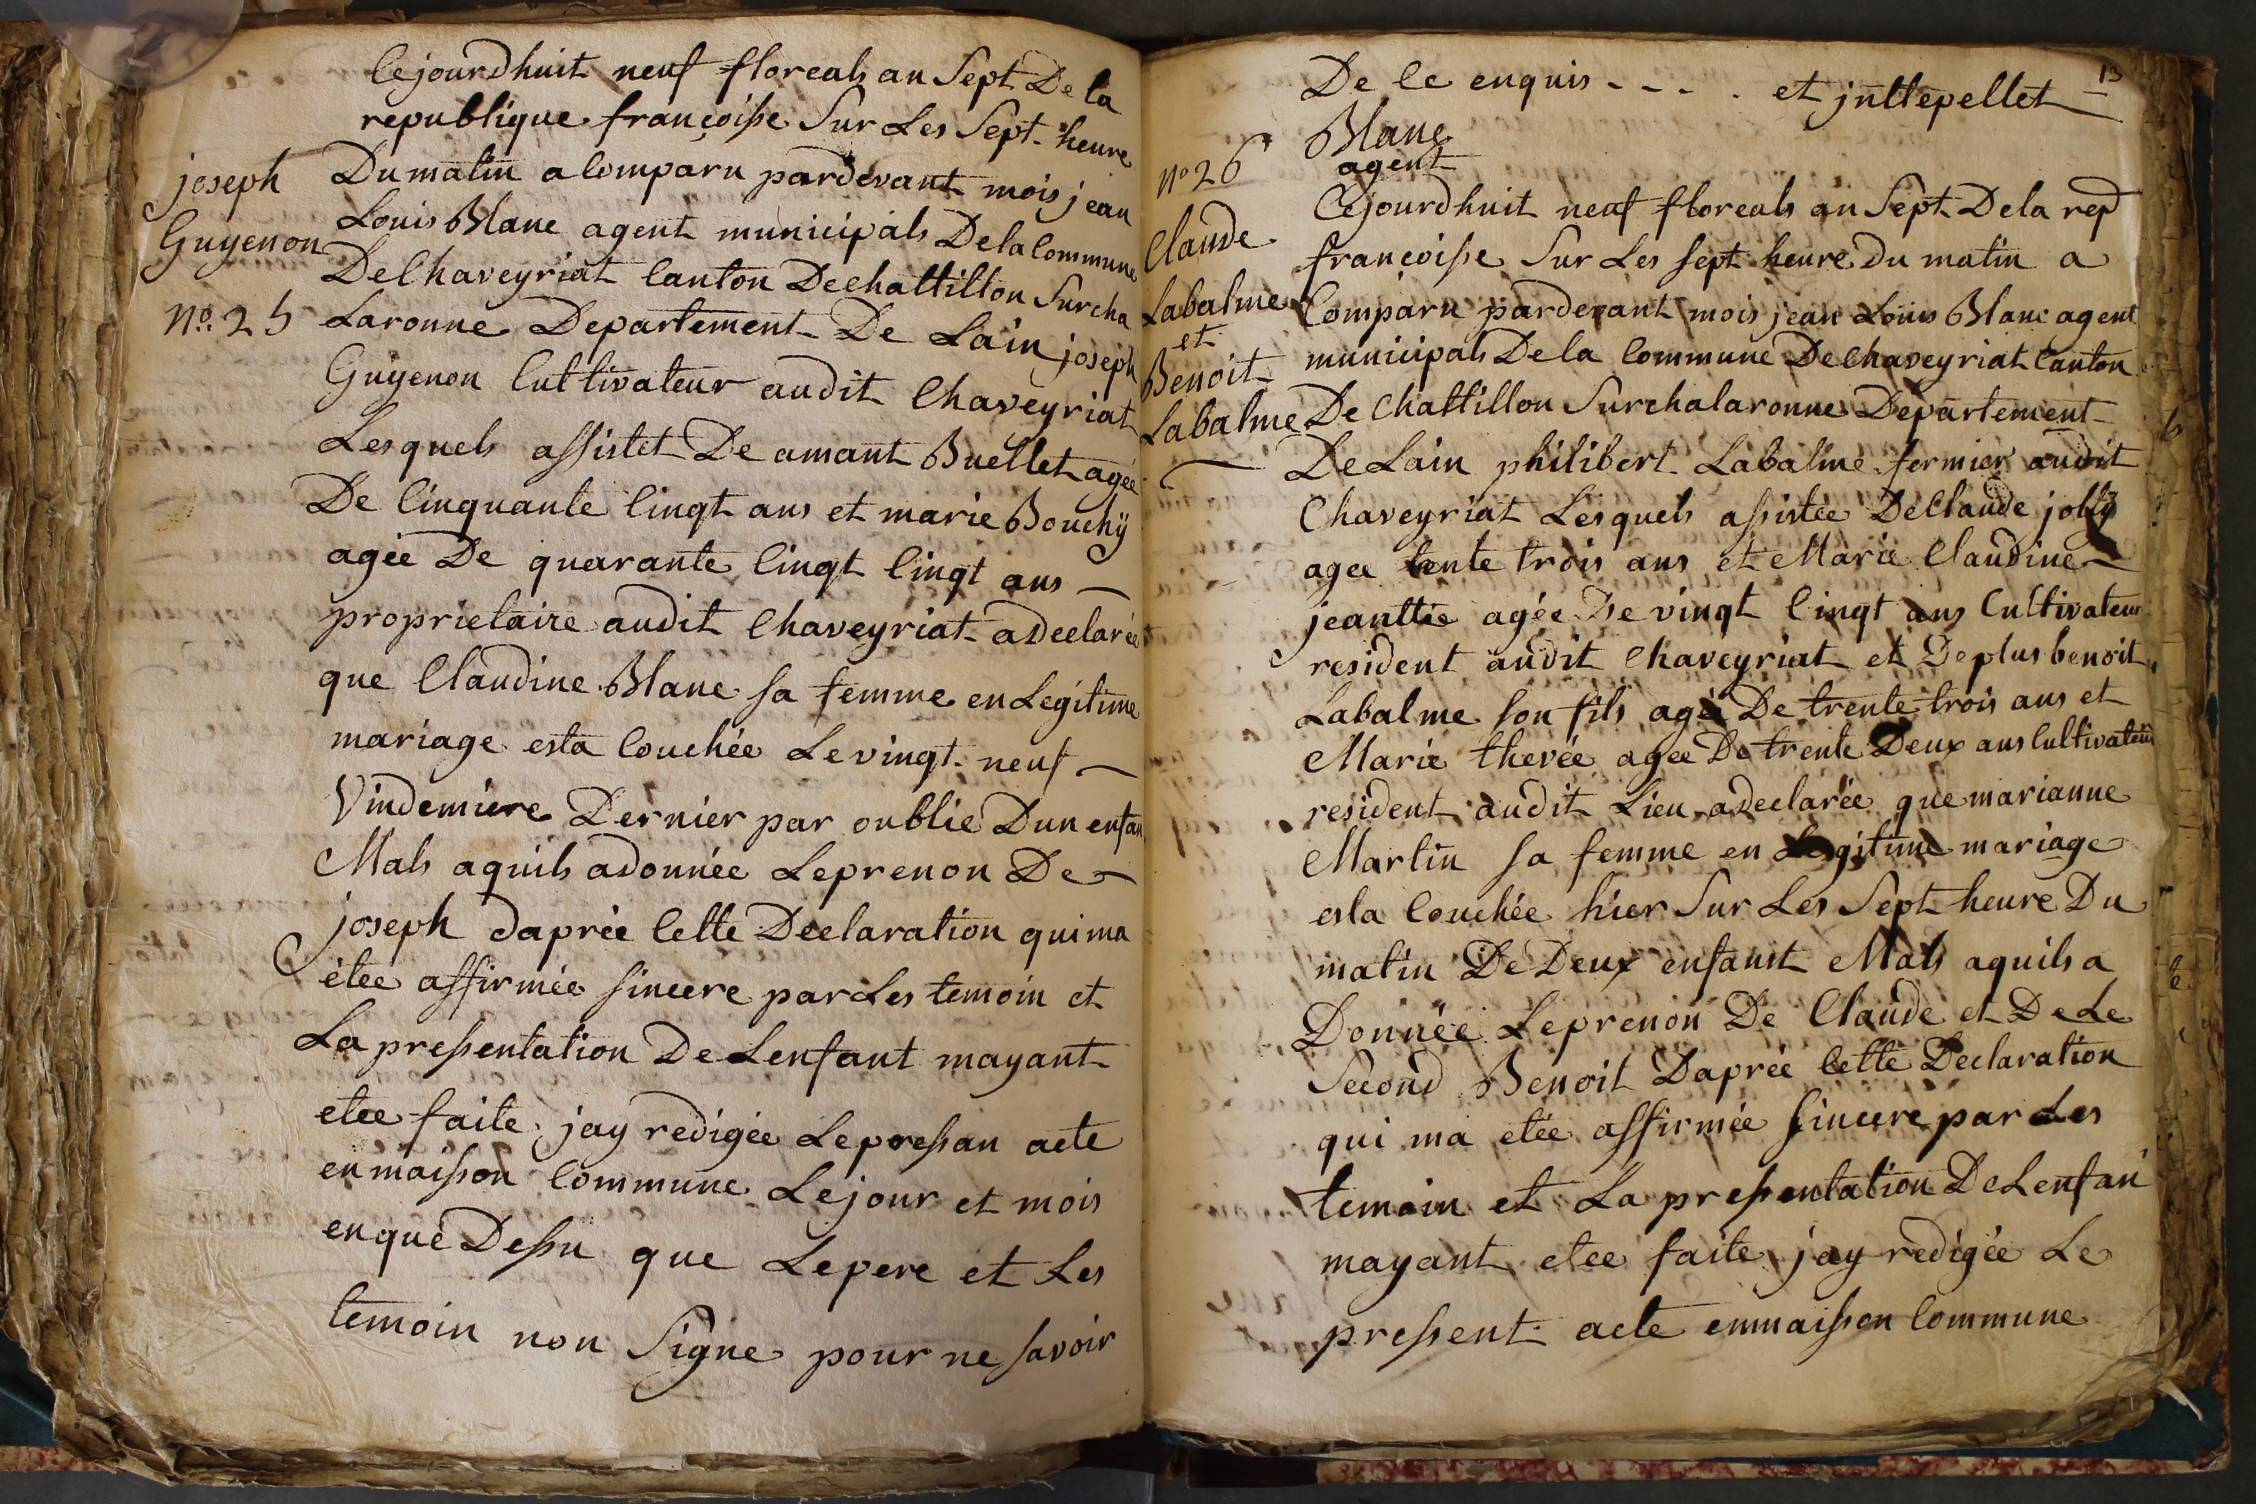 Cejourdhuit neuf floreals an Sept De la
republique françoisse Sur Les Sept heure
joseph
Guyenon
No. 25
Dumatin a Comparu pardevant mois jean
Louis Blanc agent municipals Dela Commune
De Chaveyriat Canton Dechattillon Surcha
Laronne Departement De Lain joseph
Guyenon Cultivateur audit Chaveyriat
Lesquels assistet De amant Buellet agée
De Cinquante Cinqt ans et marie Bouchÿ
agée De quarante Cinqt Cinqt ans
proprietaire audit Chaveyriat adeclarée
que Claudine Blanc sa femme en Legitime
mariage esta Couchée Le vingt neuf
Vindemiere Dernier par oublie Dun enfan
Mals aquils adonnée Leprenon De
joseph daprée Cette Declaration quima
étée affirmée sincere par Les temoin et
La pressentation De Lenfant mayant
etee faite jay redigée Lepressan acte
enmaisson Commune Lejour et mois
enque Dessu que Lepere et Les
temoin non Signe pour ne savoir
13
De Ce enquis - - - . et jnttepellet
Blanc
agent
No 26
Claude
Labalme
et
Benoit
Labalme
Cejourdhuit neuf floreals an Sept Dela rep
françoisse Sur Les sept heure Du matin a
Comparu pardevant mois jean Louis Blanc agent
municipals Dela Commune De Chaveyriat Canton
De Chattillon Surchalaronne Departement
De Lain philibert Labalme fermier audit
Chaveyriat Lesquels assistée De Claude jolly
agee tente trois ans et Marie Claudine
jeanttie agée De vingt Cinqt ans Cultivateur
resident audit Chaveyriat et Deplus benoit
Labalme son fils agé De trente trois ans et
Marie thevée agee De trente Deux ans Cultivateur
resident audit Lieu adeclarée que marianne
Martin sa femme en Legitime mariage
esta Couchée hier Sur Les Sept heure Du
matin De Deux enfanst Mals aquils a
Donnée Leprenon De Claude et De Le
Second Benoit Daprée Cette Declaration
qui ma etée affirmée sincere par Les
temoin et La pressentation De Lenfan
mayant etee faite jay redigée Le
pressent acte enmaisson Commune